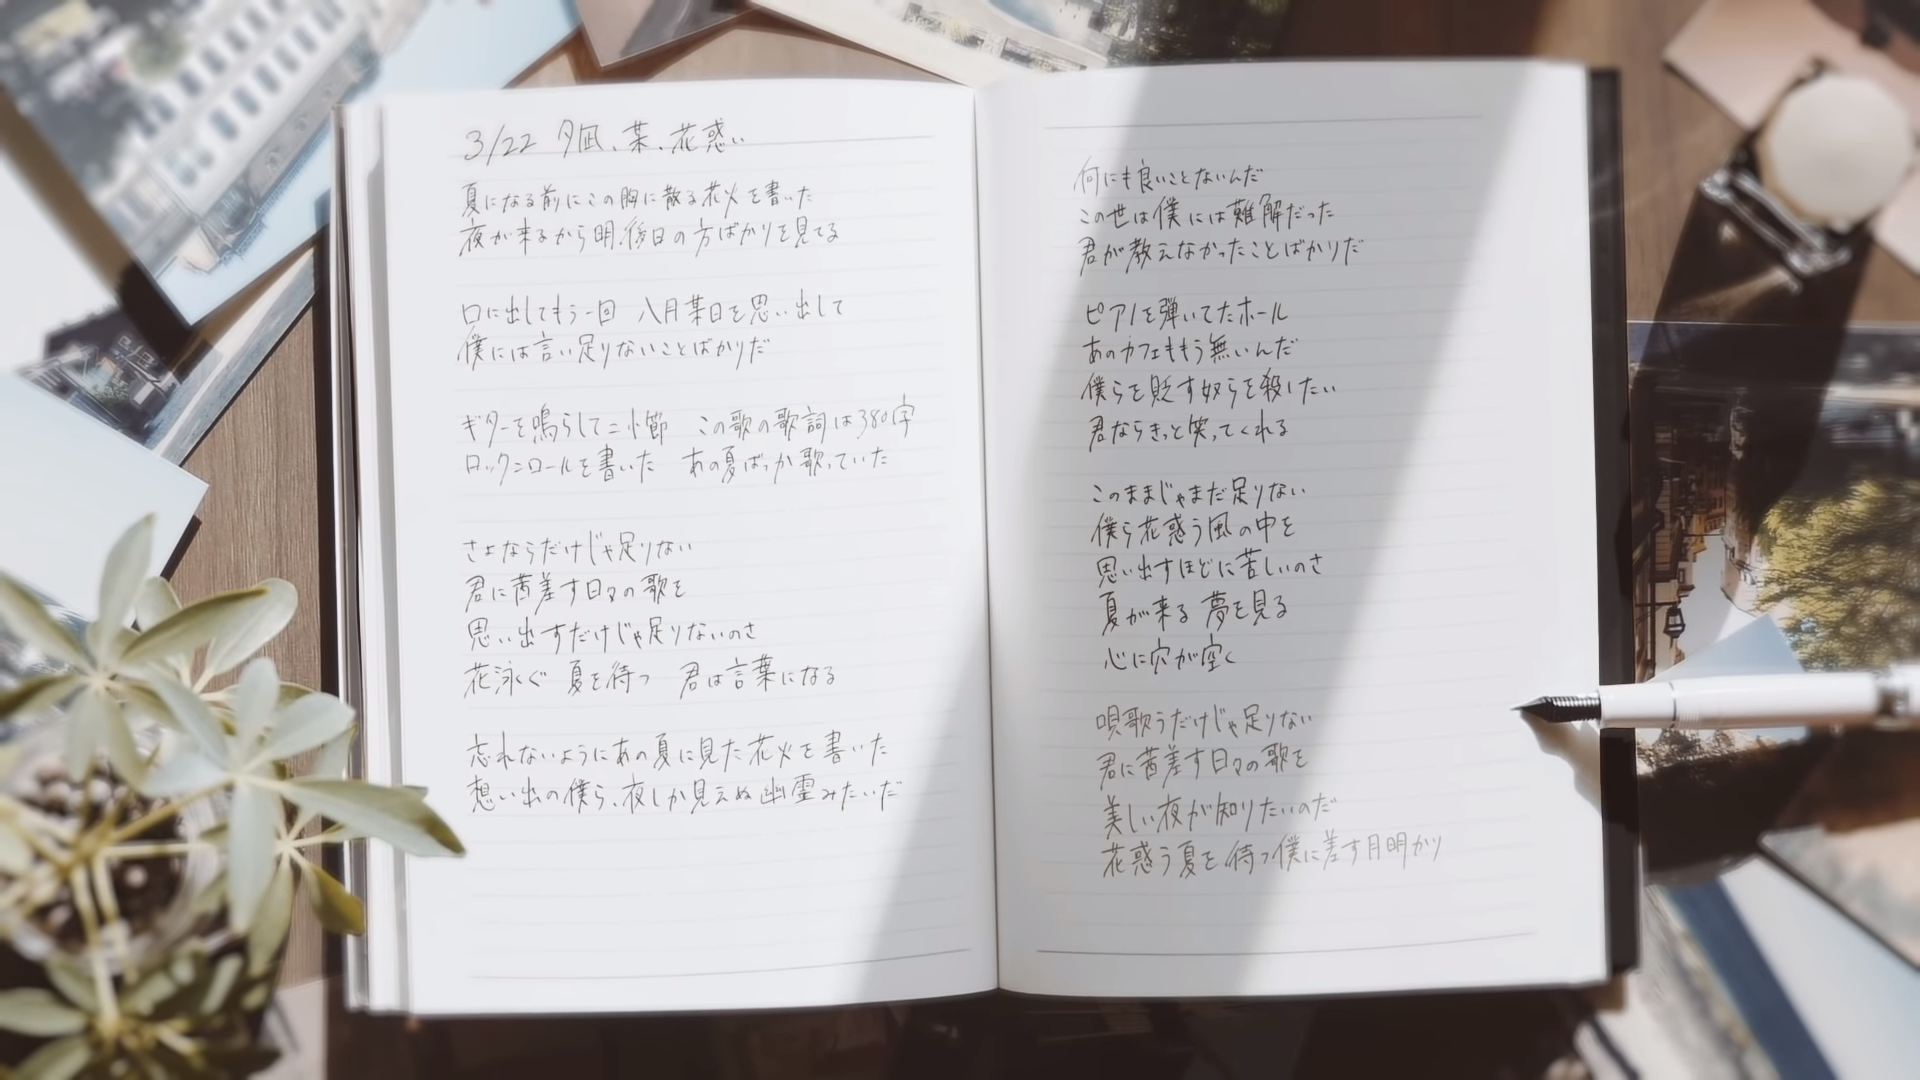 3/22 夕凪、某、花惑い
夏になる前にこの胸に散る花火を書いた
夜が来るから明後日の方ばかりを見てる
口に出してもう一回 八月某日を思い出して
僕には言い足りないことばかりだ
ギターを鳴らして二小節 この歌の歌詞は380字
ロックンロールを書いた あの夏ばっか歌っていた
さよならだけじゃ足りない
君に茜差す日々の歌を
思い出すだけじゃ足りないのさ
花泳ぐ 夏を待つ 君は言葉になる
忘れないようにあの夏に見た花火を書いた
想い出の僕ら、夜しか見えぬ幽霊みたいだ
何にも良いことないんだ
この世は僕には難解だった
君が教えなかったことばかりだ
ピアノを弾いてたホール
あのカフェももう無いんだ
僕らを貶す奴らを殺したい
君ならきっと笑ってくれる
このままじゃまだ足りない
僕ら花惑う風の中を
思い出すほどに苦しいのさ
夏が来る 夢を見る
心に穴が空く
唄歌うだけじゃ足りない
君に茜差す日々の歌を
美しい夜が知りたいのだ
花惑う夏を待つ僕に差す月明かり